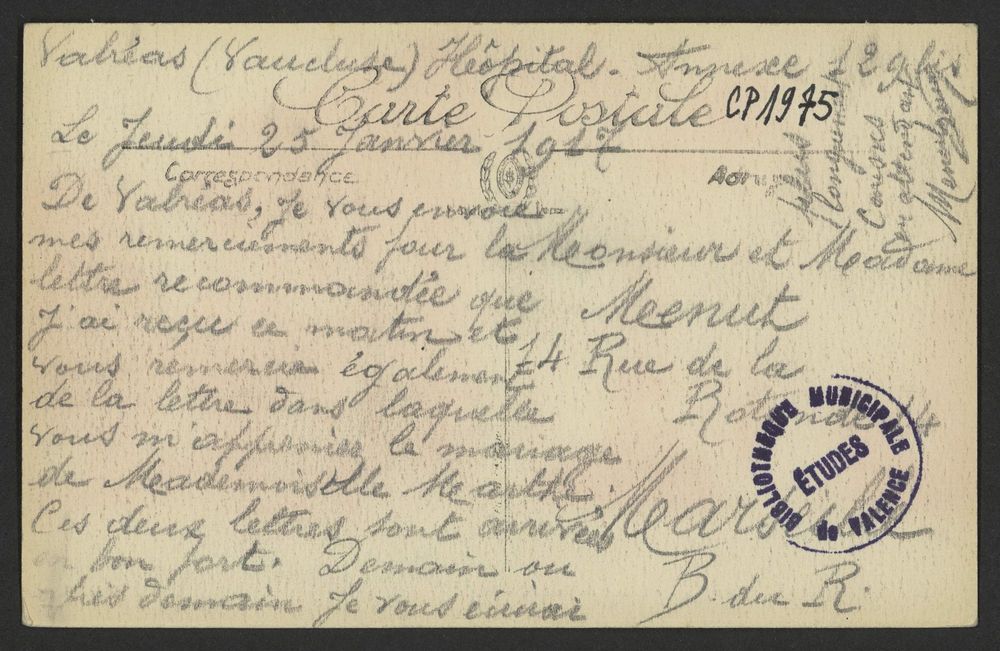 Valréas (Vaucluse) Hôpital - Annexe 12 9 bis
Carte Postale CP1975
Le Jeudi 25 Janvier 1917
Correspondance
De Valréas, Je vous envoie
mes remerciements pour la
lettre recommandée que
J'ai reçu ce matin et
vous remercie également
de la lettre dans laquelle
vous m'apprenier le mariage
de Meademoiselle Mearthe.
Ces deux lettres sont arrivées
en bon port. Demain ou
après demain Je vous écrirai
Monsieur et Meadame
Meenut
14 Rue de la
Rotonde 14
Marseille
B. du R.
Longuemar
Corisus
en attendant
BIBLIOTHEQUE MUNICIPALE
ÉTUDES
de VALENCE